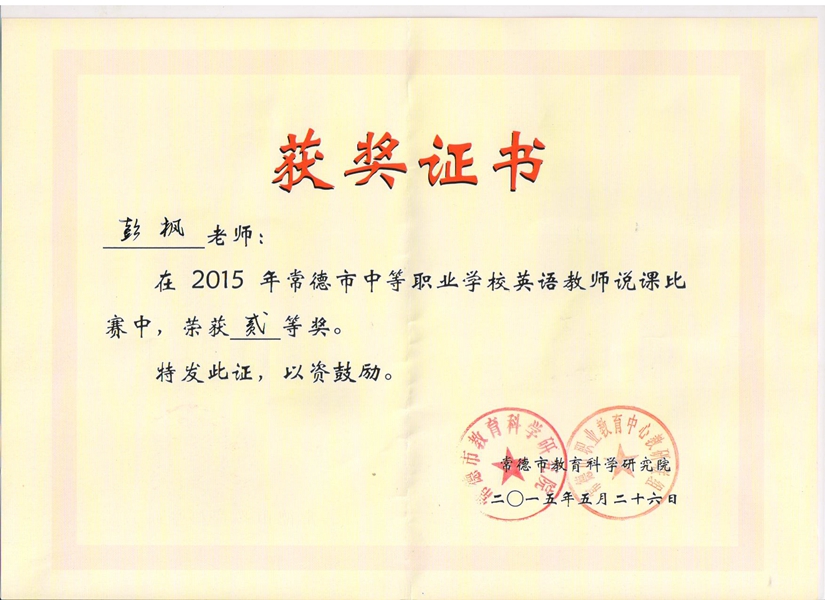 获奖证书
彭枫老师：
在 2015 年常德市中等职业学校英语教师说课比
赛中，荣获贰等奖。
特发此证，以资鼓励。
常德市教育科学研究院
常德市教育科学研究院
二〇一五年五月二十六日